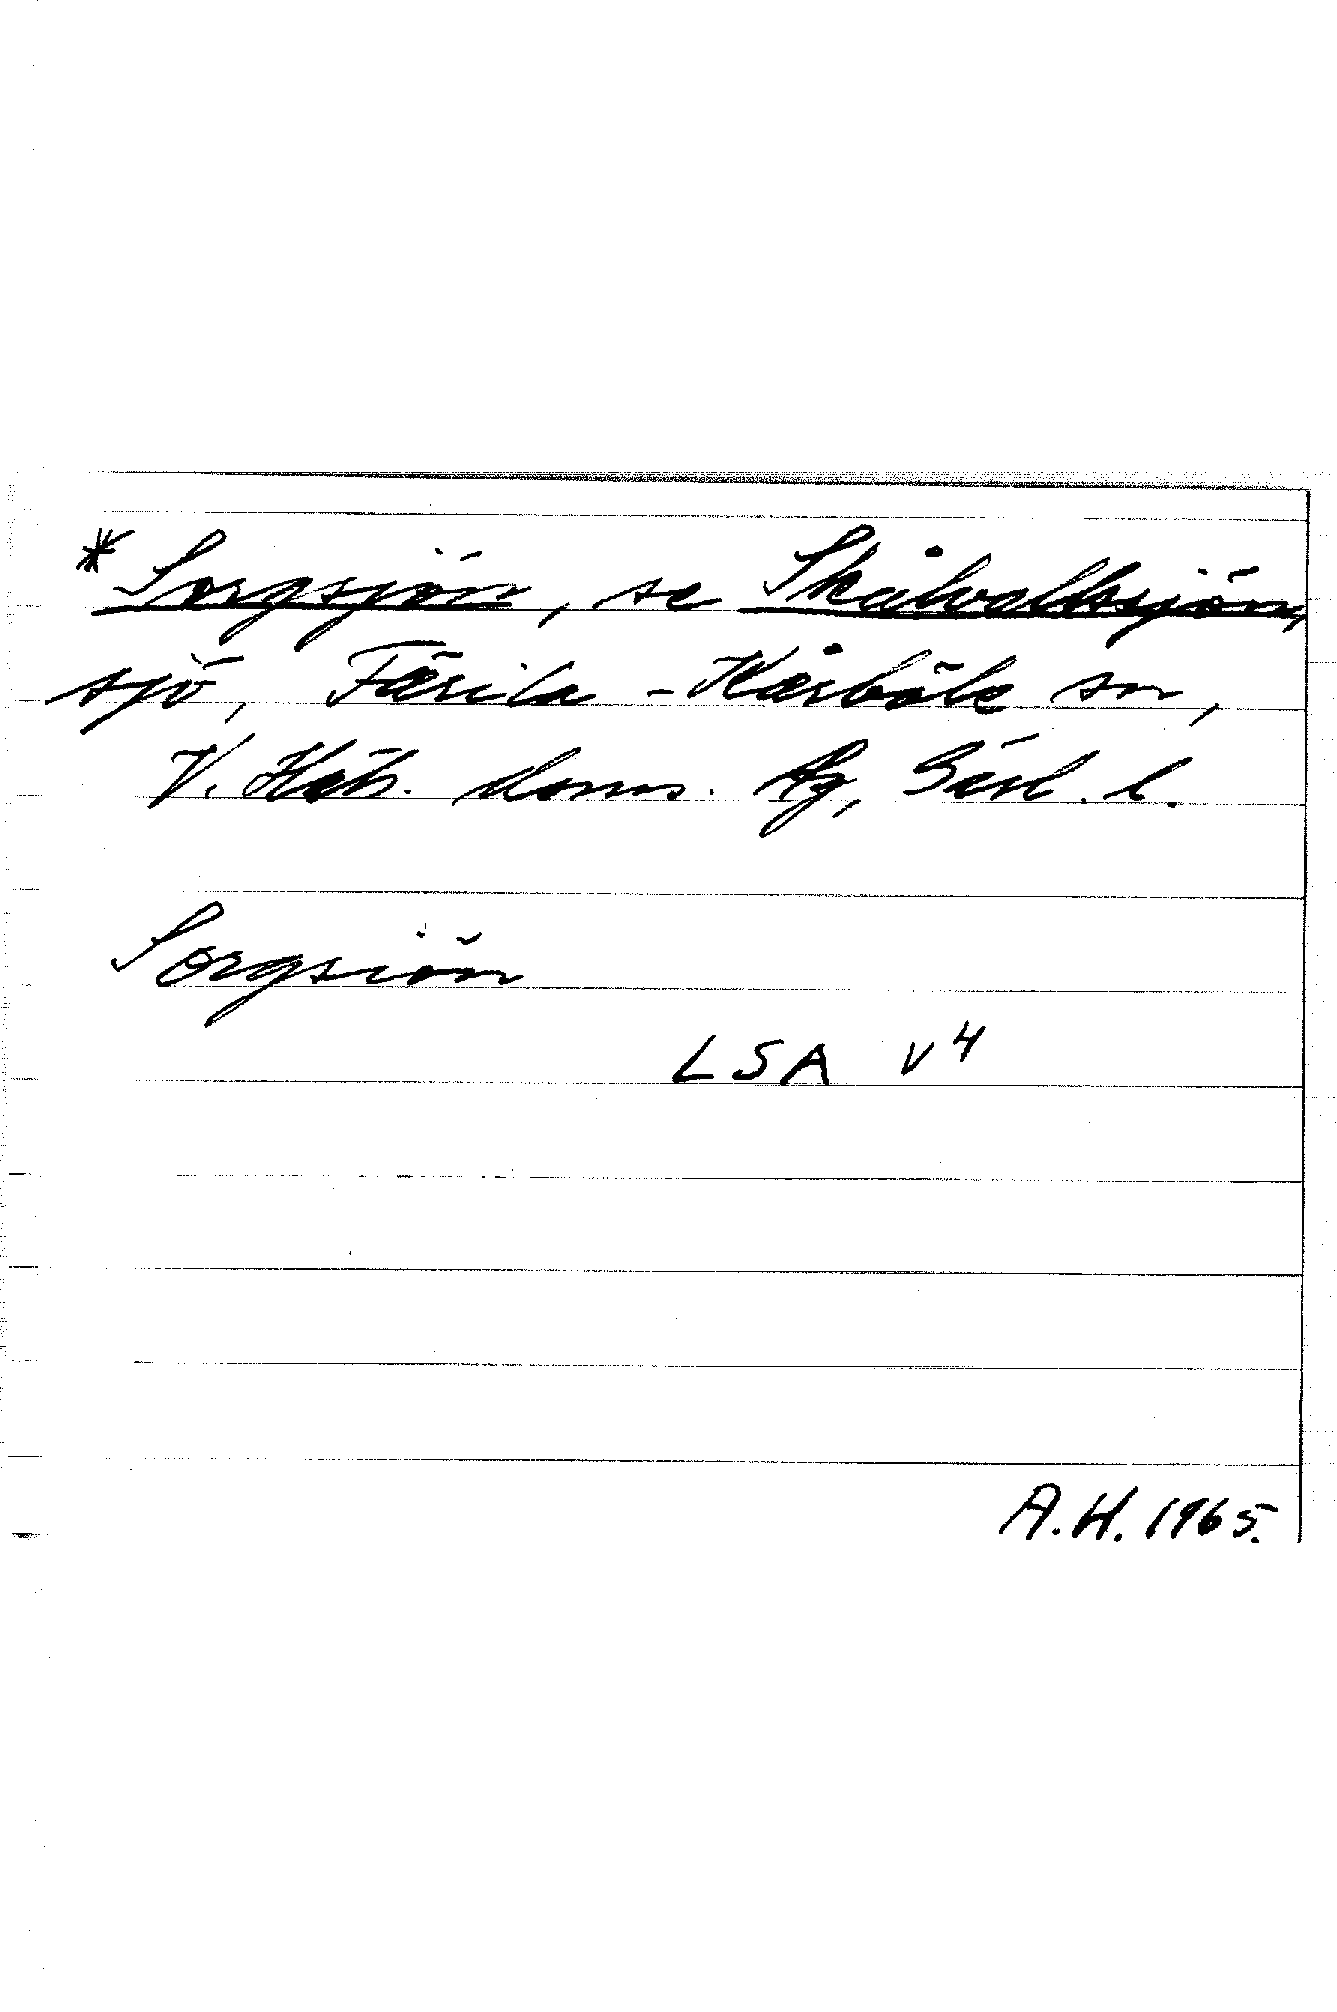 * Sorgsjön, se Skålvallsjön,
sjö, Färila - Kårböle sn,
V. Häls. doms. lg, Gävl. l.
Sorgsiön
LSA V4
A.H. 1965.